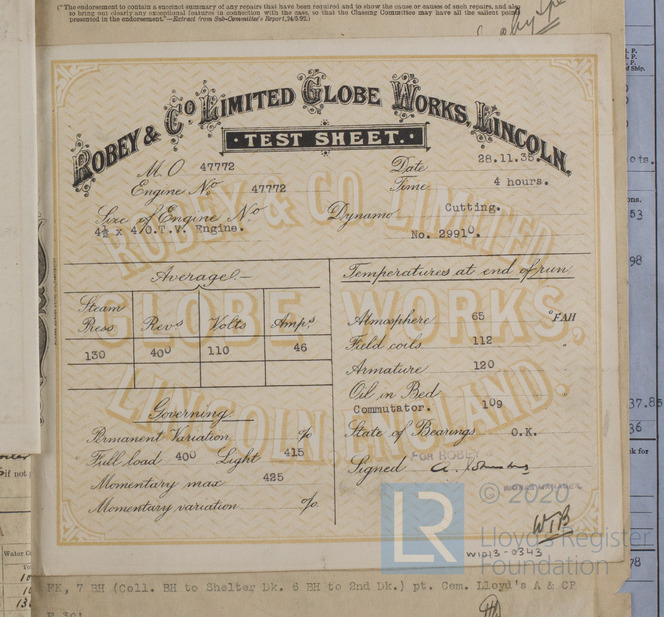 ("The endorsement to contain a succinct summary of any repairs that have been required and to show the cause or causes of such repairs, and also
to bring out clearly any exceptional features in connection with the case, so that the Classing Committee may have all the salient points
presented in the endorsement."—Extract from Sub-Committee's Report, 24/5/92.)
ROBEY & Co LIMITED GLOBE WORKS, LINCOLN.
· TEST SHEET. ·
M.O 47772 Date 28.11.35.
Engine No 47772 Time 4 hours.
Size of Engine No Dynamo Cutting.
4½ x 4 O.T.V. Engine. No. 29910.
ROBEY & CO LIMITED
GLOBE WORKS,
LINCOLN, ENGLAND.
Averages.— Temperatures at end of run
Steam Press Revs Volts Amps
130 400 110 46
Atmosphere 65 °FAH
Field coils 112 "
Armature 120 "
Oil in Bed "
Commutator. 109
State of Bearings O.K.
FOR ROBEY
Signed
WORKS MANAGER
Governing
Permanent Variation %
Full load 400 Light 415
Momentary max 425
Momentary variation %
© 2020
LR
Lloyd's Register
Foundation
WTB
W1013-0343
FK, 7 BH (Coll. BH to Shelter Dk. 6 BH to 2nd Dk.) pt. Cem. Lloyd's A & CP
Water C
if not
of Ship.
53
98
37.85
36
k for
78